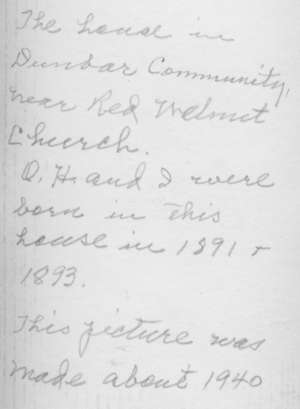 The house in
Dunbar Community,
near Red Walnut
Church.
O. H. and I were
born in this
house in 1891 +
1893.
This picture was
made about 1940